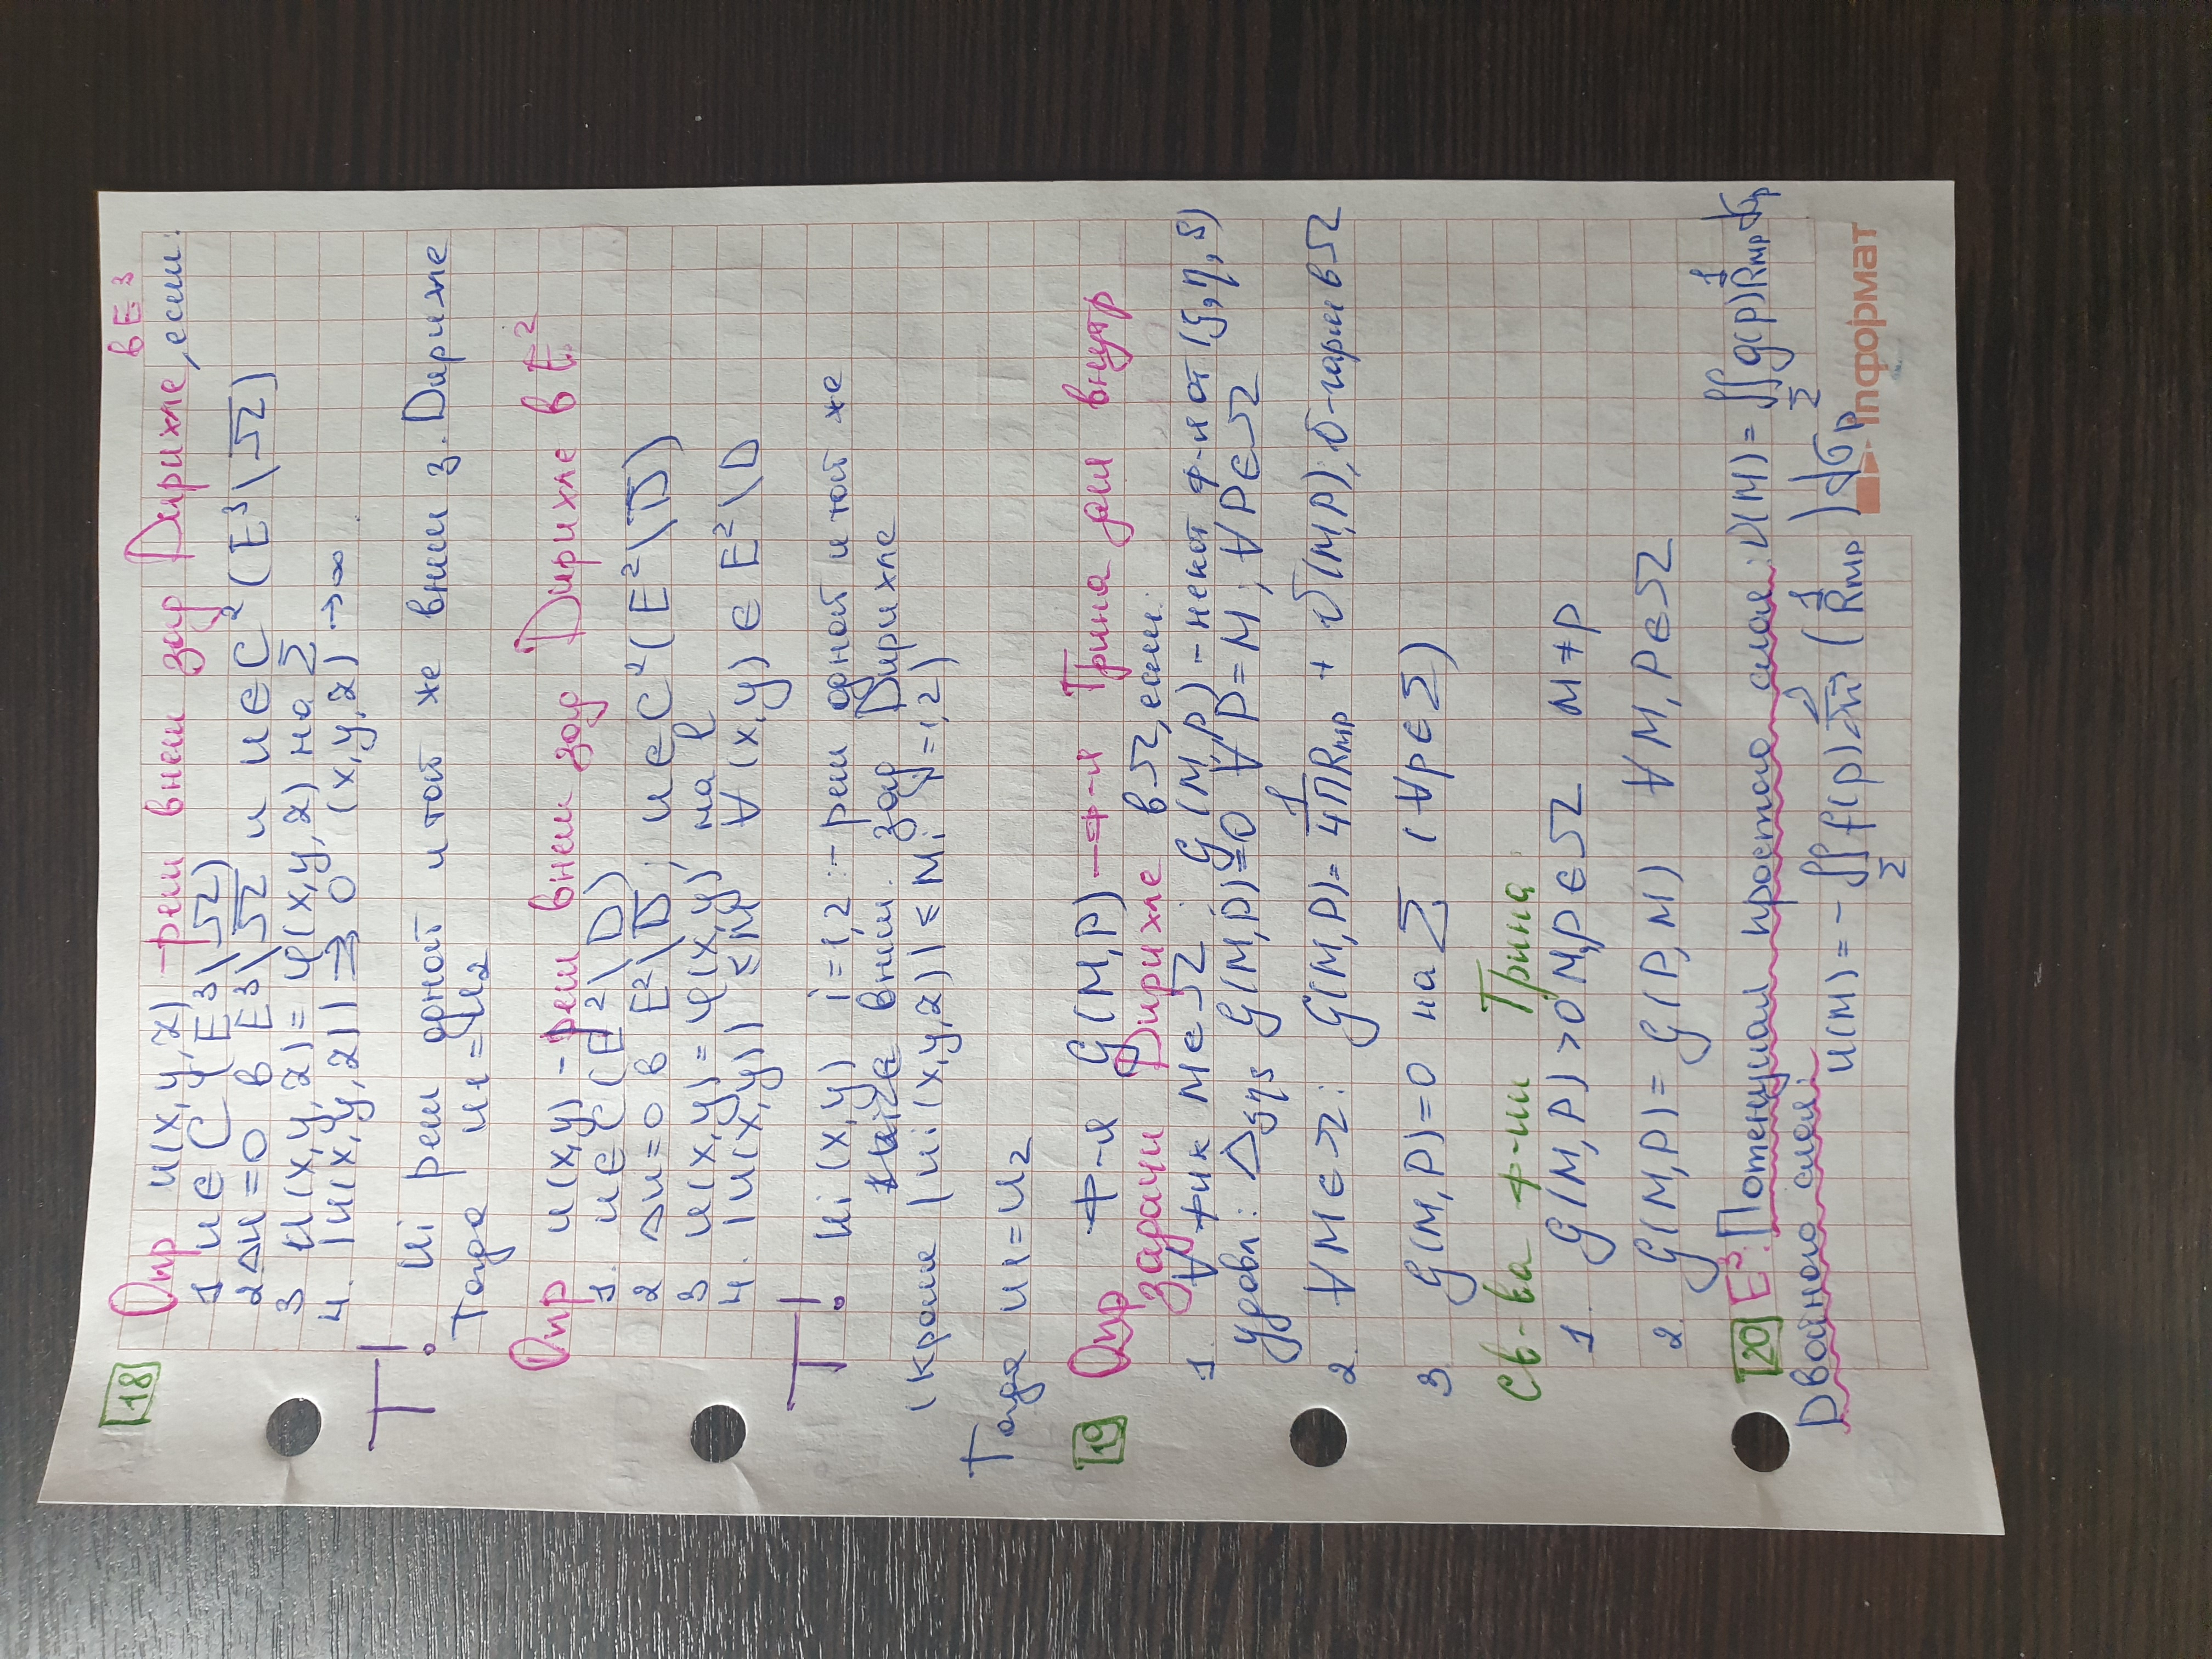 18
Опр u(x,y,z) – реш внеш зад Дирихле в E³, если:
1 u ∈ C (E³\Ω) и u ∈ C² (E³\Ω̅)
2 Δu = 0 в E³\Ω̅
3 u(x,y,z) = φ(x,y,z) на Σ
4. |u(x,y,z)| ⇉ 0 (x,y,z) → ∞
T! ui реш одной и той же внеш з. Дирихле
Тогда u₁ = u₂
Опр u(x,y) – реш внеш зад Дирихле в E²
1. u ∈ C (E²\D) ; u ∈ C² (E²\D̅)
2 Δu = 0 в E²\D̅ ;
3 u(x,y) = φ(x,y), на ℓ
4. |u(x,y)| ≤ M ∀(x,y) ∈ E²\D
T! ui(x,y) i=1,2 – реш одной и той же
внеш. зад Дирихле
(кроме |ui(x,y,z)| ≤ Mi =1,2)
Тогда u₁ = u₂
19
Опр ф-я G(M,P) – ф-я Грина для внутр
задачи Дирихле в Ω, если:
1. ∀ фик M ∈ Ω G(M,P) – некот ф-я от (ξ,η,ζ)
удовл: Δξηζ G(M,P) = 0 ∀P = M ; ∀P ∈ Ω
2 ∀M ∈ Ω: G(M,P) = 1/4πRmp + v(M,P), v – гарм в Ω
3 G(M,P) = 0 на Σ (∀p ∈ Σ)
Св-ва ф-ии Грина
1. G(M,P) > 0 M,P ∈ Ω M ≠ P
2. G(M,P) = G(P,M) ∀M,P ∈ Ω
20 E³. Потенциал простого слоя: V(M) = ∬Σ g(p) 1/Rmp dσp
Двойного слоя: u(M) = – ∬Σ f(p) ∂/∂n (1/Rmp) dσp
Informат